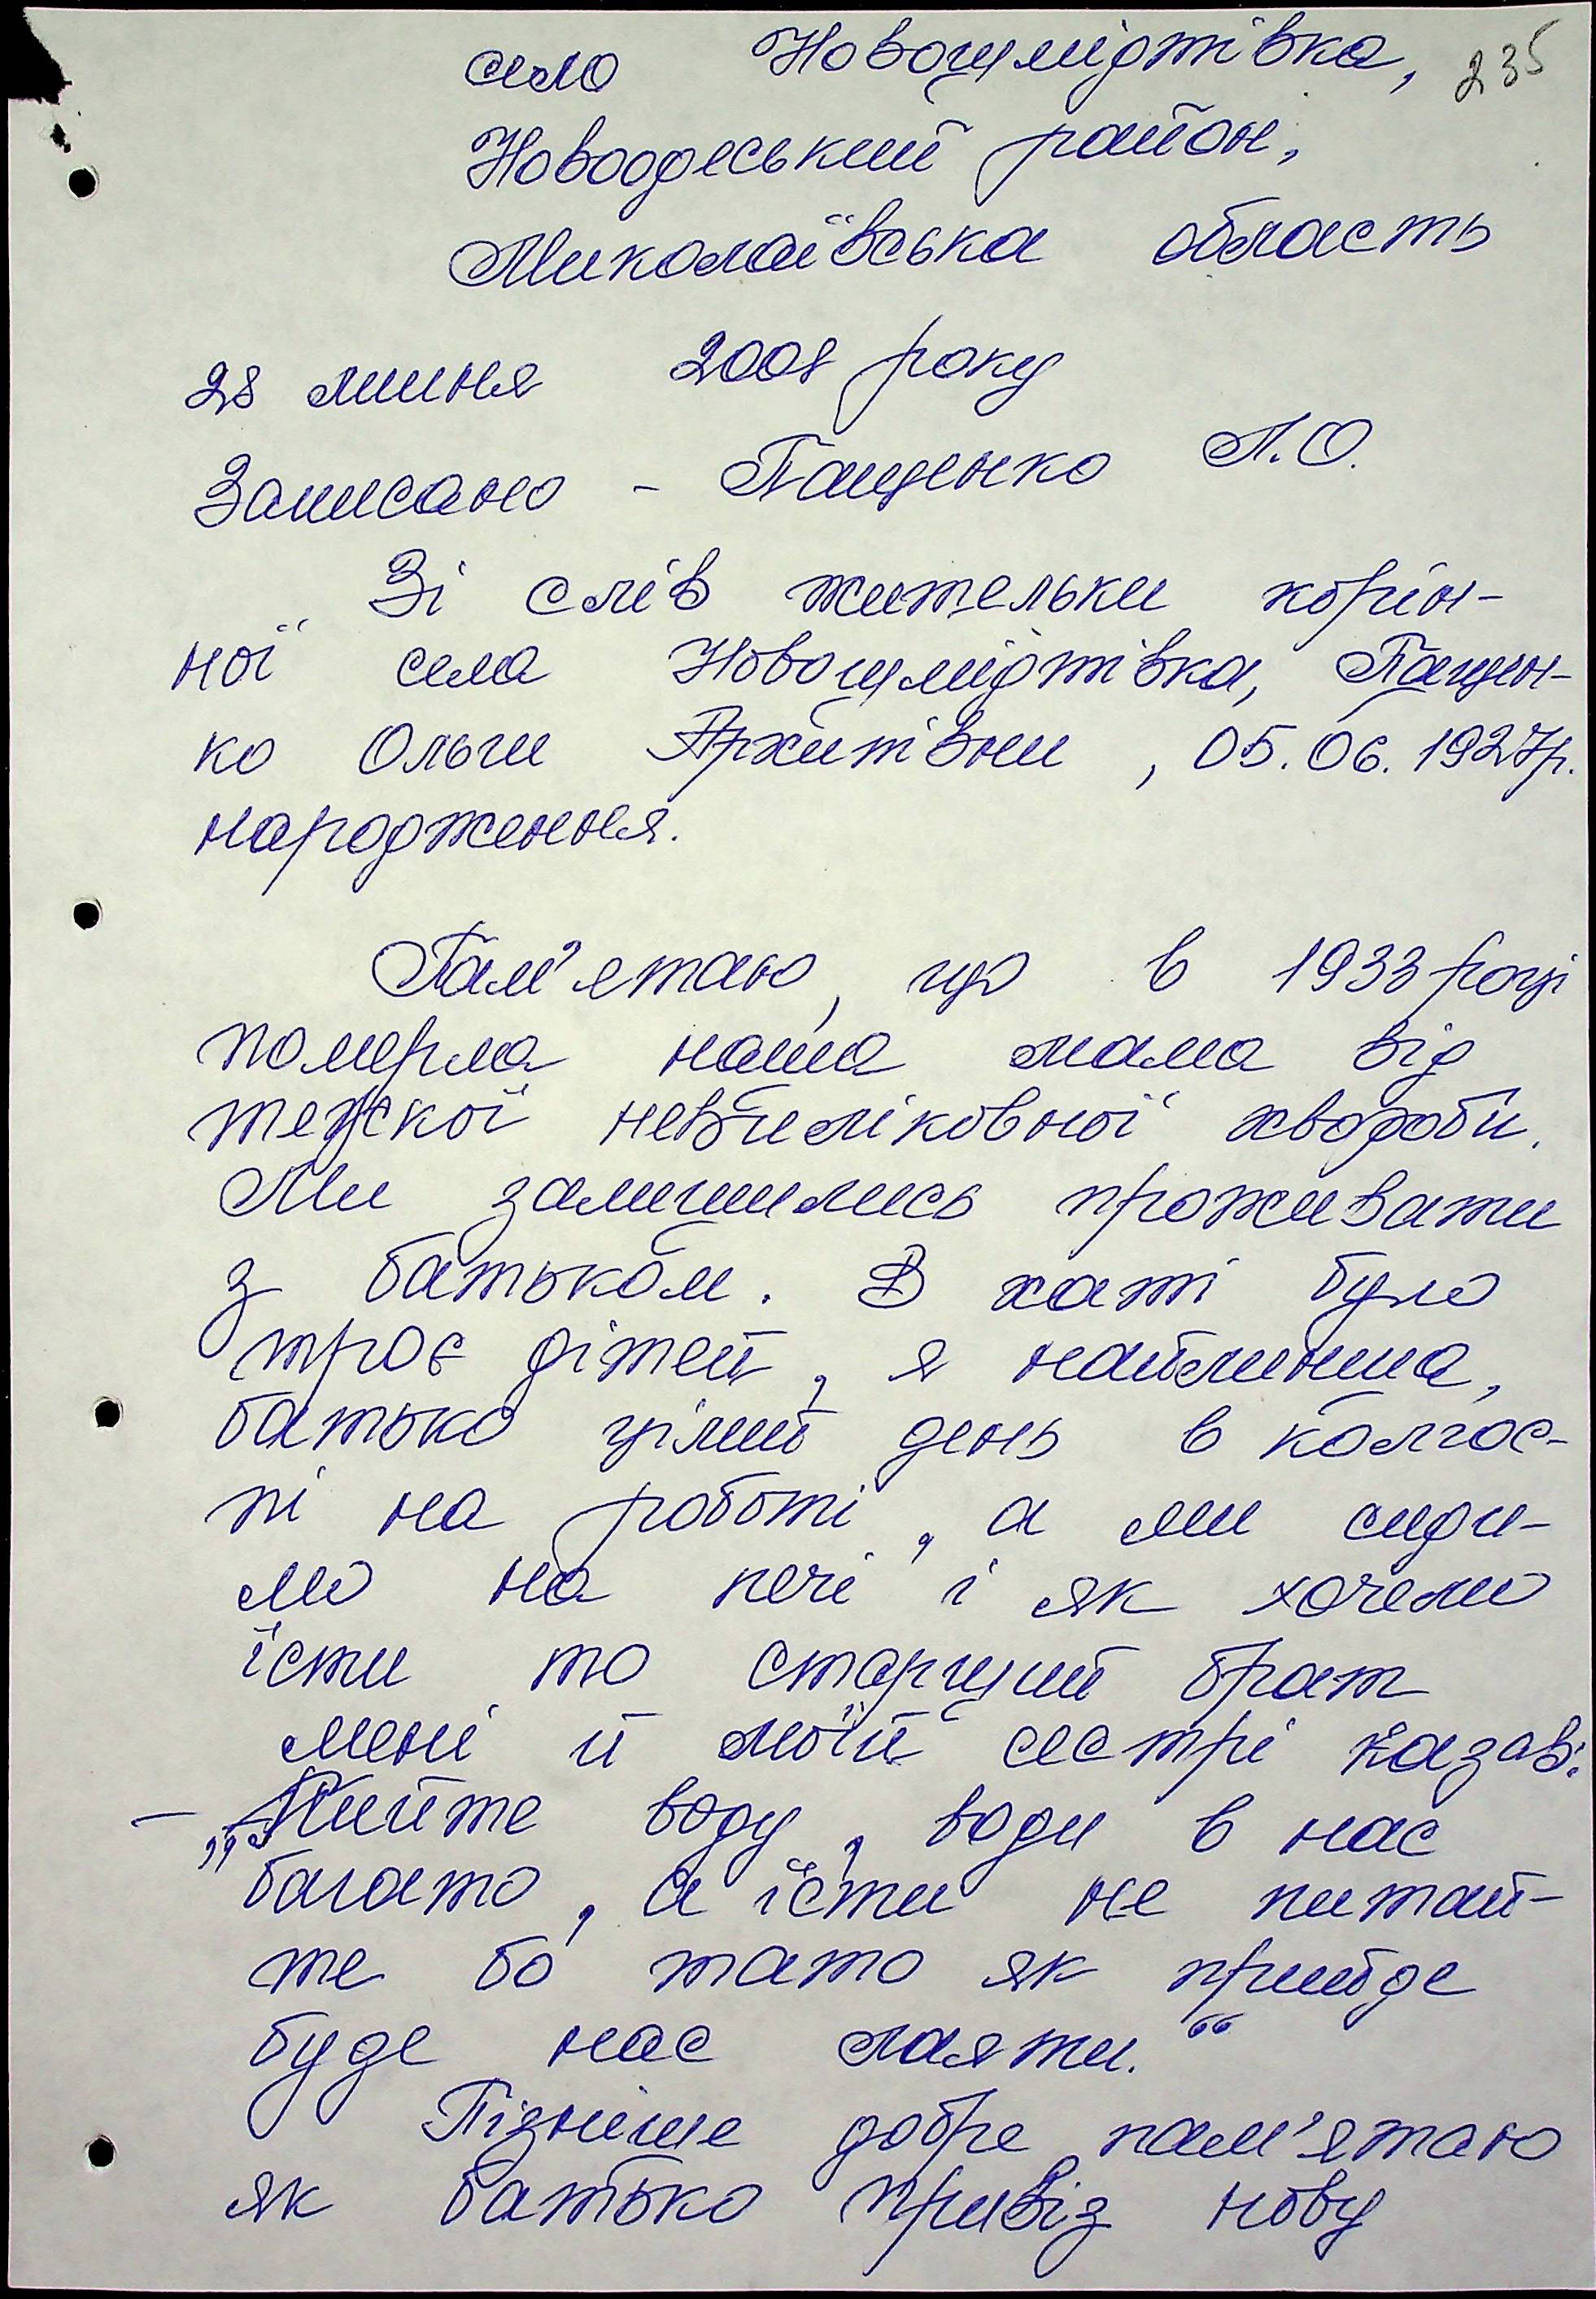 село Новошмідтівка, 235
Новоодеський район,
Миколаївська область
28 липня 2008 року
Записано - Пащенко Л.О.
Зі слів жительки корін-
ної села Новошмідтівка, Пащен-
ко Ольги Архипівни, 05.06.1927р.
народження.
Пам'ятаю, що в 1933 році
померла наша мама від
тежкої невиліковної хвороби.
Ми залишились проживати
з батьком. В хаті було
троє дітей, я найменша,
батько цілий день в колгос-
пі на роботі, а ми сиди-
мо на печі і як хочемо
їсти то старший брат
мені й моїй сестрі казав:
– „Пийте воду, води в нас
багато, а їсти не питай-
те бо тато як прийде
буде нас лаяти."
Пізніше добре пам'ятаю
як батько привіз нову